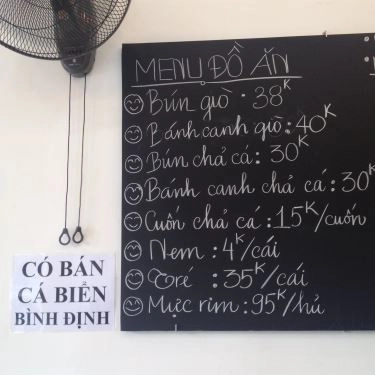 MENU ĐỒ ĂN
Bún giò · 38K
Bánh canh giò : 40K
Bún chả cá : 30K
Bánh canh chả cá : 30K
Cuốn chả cá : 15K/cuốn
Nem : 4K/cái
Coré : 35K/cái
Mực rim : 95K/hủ
CÓ BÁN
CÁ BIỂN
BÌNH ĐỊNH